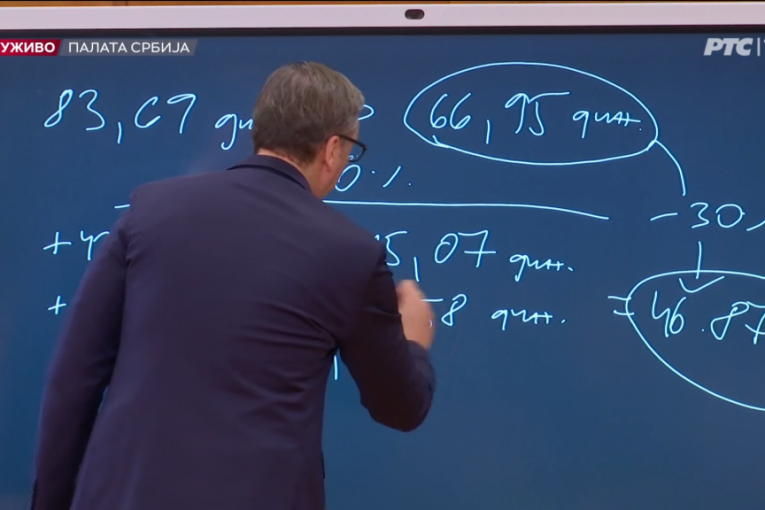 УЖИВО ПАЛАТА СРБИЈА
РТС
83,69 66,95 дин.
0%
-30
+ 5,07 дин.
+ 58 дин. = 46.87